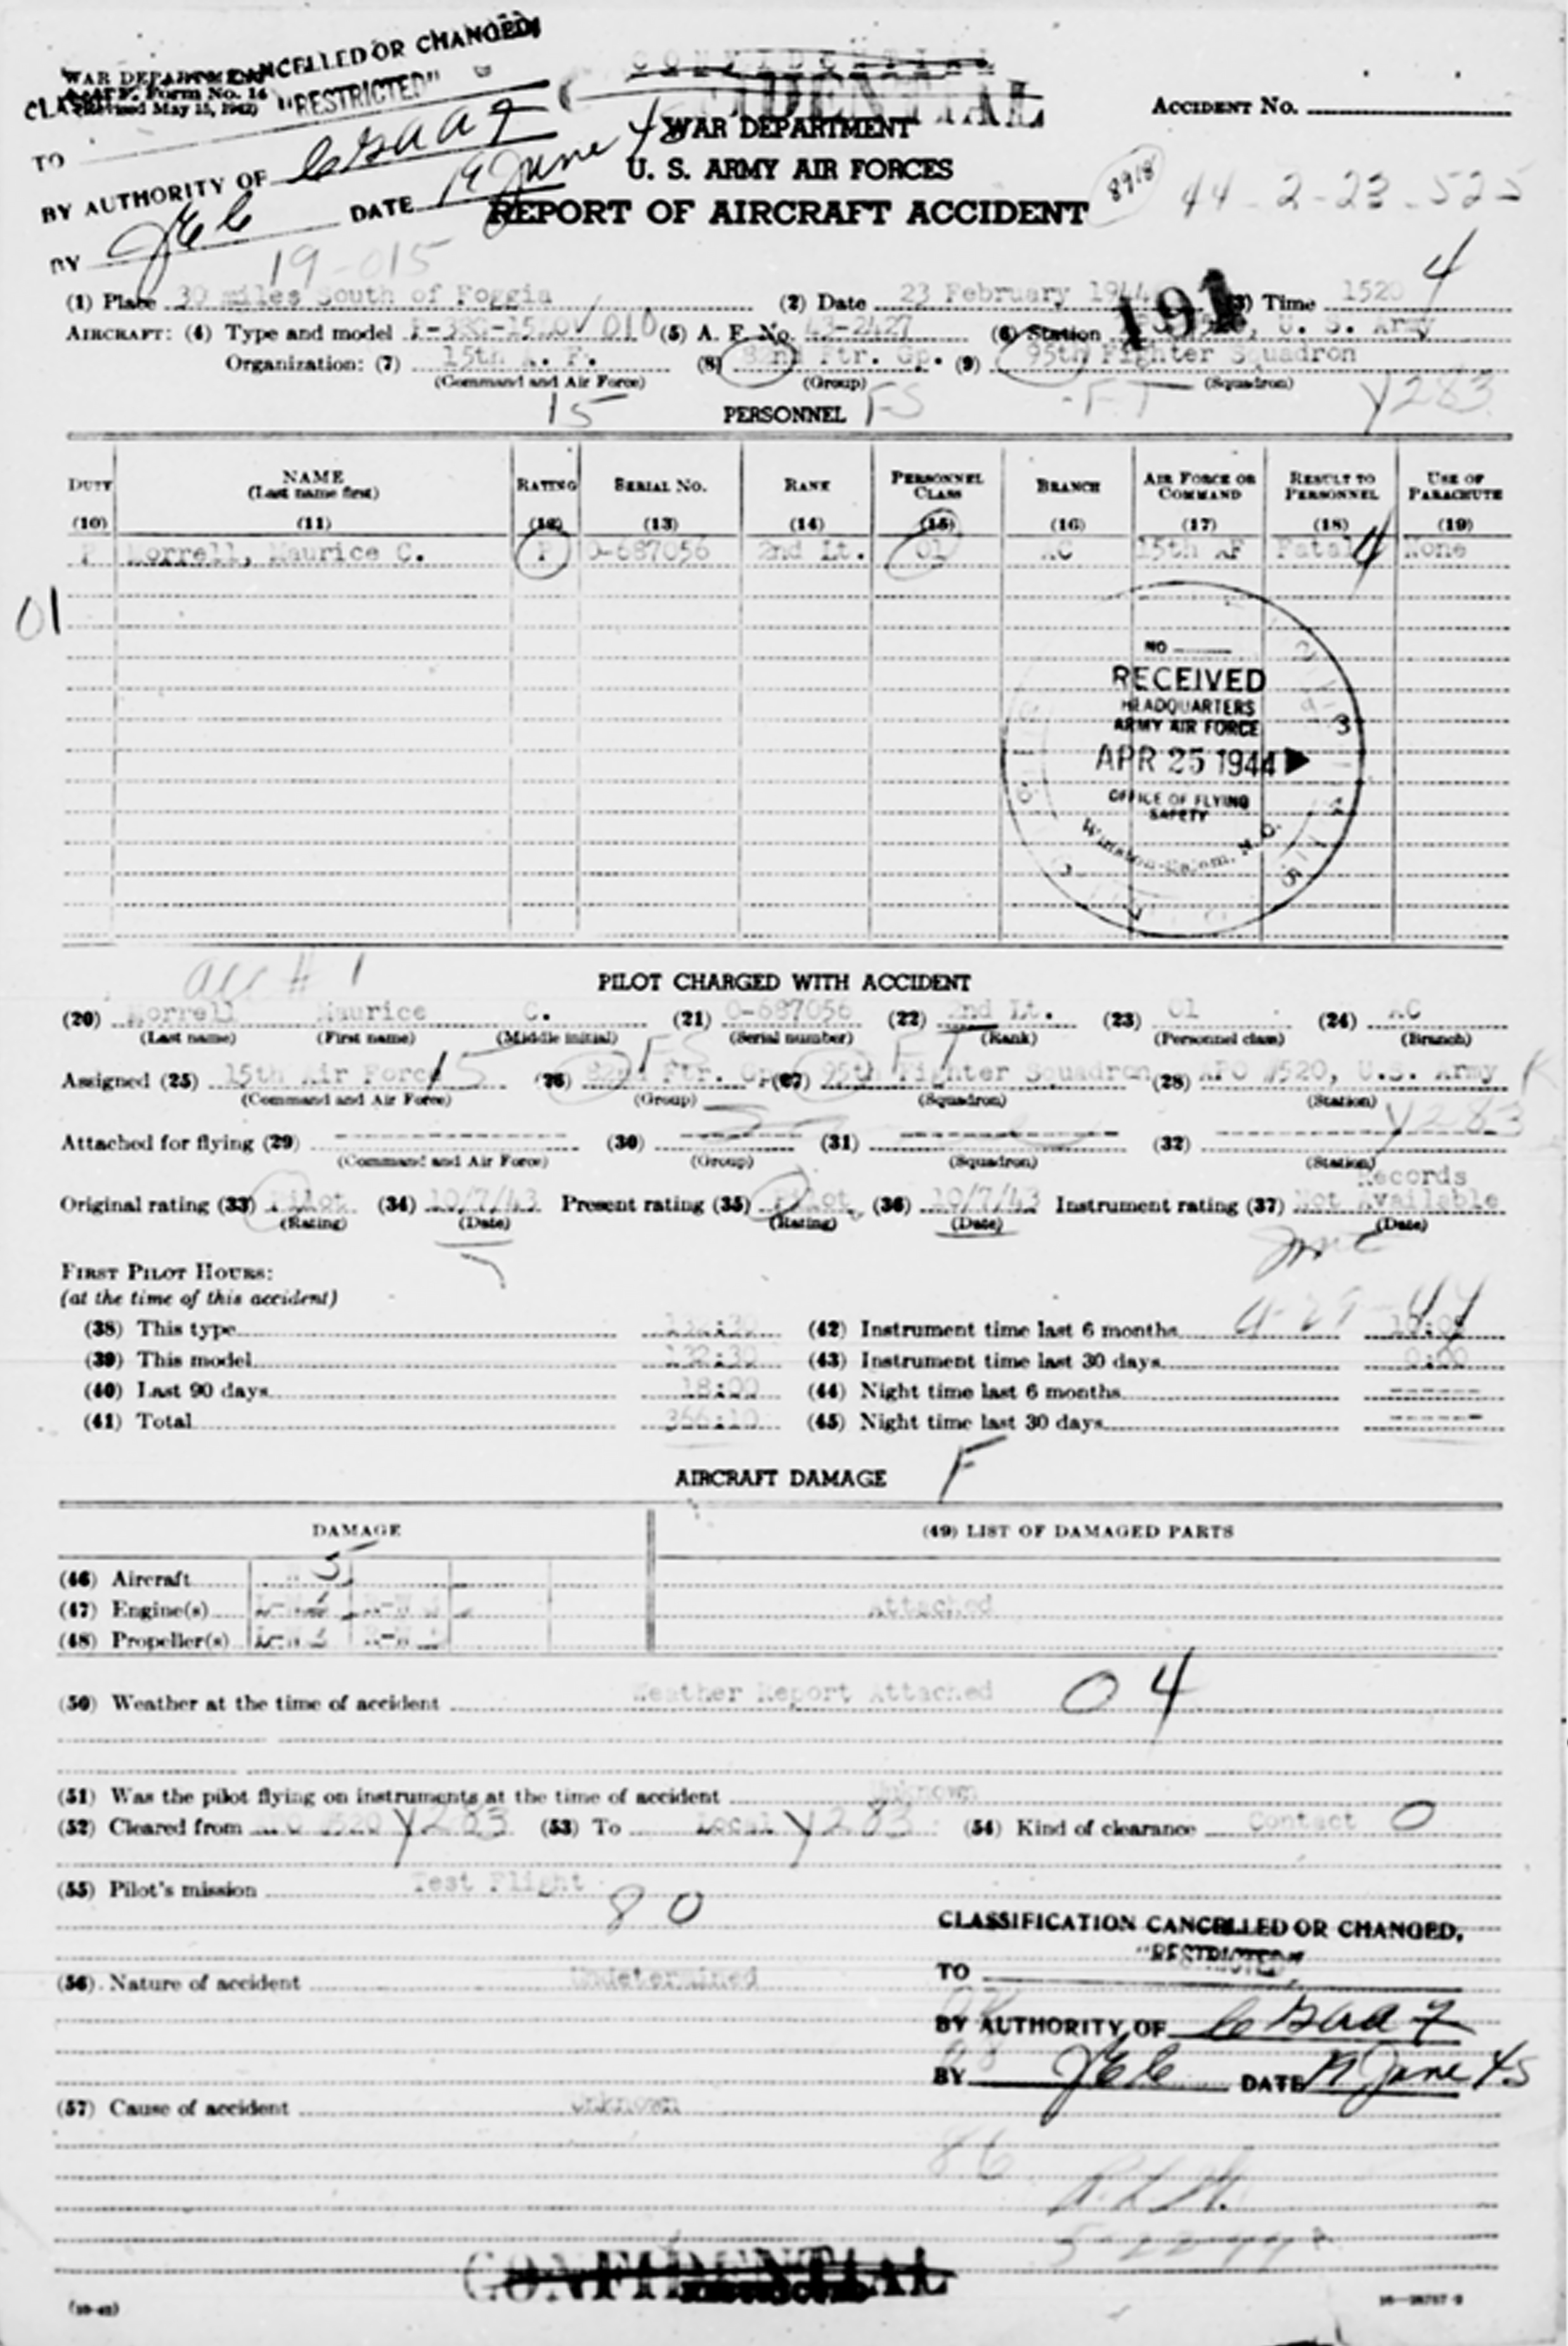 WAR DEPARTMENT
A. A. F. Form No. 14
(Revised May 15, 1942)
CANCELLED OR CHANGED,
"RESTRICTED"
TO
BY AUTHORITY OF CG AAF
BY JEC DATE 19 June 45
CONFIDENTIAL
WAR DEPARTMENT
U. S. ARMY AIR FORCES
REPORT OF AIRCRAFT ACCIDENT
ACCIDENT No.
8918
44-2-23-525
19-015
4
(1) Place 30 miles South of Foggia (2) Date 23 February 1944 (3) Time 1520
191
AIRCRAFT: (4) Type and model P-38G-15-LO 010 (5) A. F. No. 43-2427 (6) Station U. S. Army
Organization: (7) 15th A. F. (8) 82nd Ftr. Gp. (9) 95th Fighter Squadron
(Command and Air Force) (Group) (Squadron)
15 FS -FT Y283
PERSONNEL
DUTY NAME (Last name first) RATING SERIAL No. RANK PERSONNEL CLASS BRANCH AIR FORCE OR COMMAND RESULT TO PERSONNEL USE OF PARACHUTE
(10) (11) (12) (13) (14) (15) (16) (17) (18) (19)
P Morrell, Maurice C. P O-687056 2nd Lt. 01 AC 15th AF Fatal 4 None
01
NO
RECEIVED
HEADQUARTERS
ARMY AIR FORCE
APR 25 1944
OFFICE OF FLYING
SAFETY
Winston-Salem, N. C.
acc # 1
PILOT CHARGED WITH ACCIDENT
(20) Morrell Maurice C. (21) O-687056 (22) 2nd Lt. (23) 01 (24) AC
(Last name) (First name) (Middle initial) (Serial number) (Rank) (Personnel class) (Branch)
15 FS FT
Assigned (25) 15th Air Force (26) 82nd Ftr. Gp. (27) 95th Fighter Squadron (28) APO #520, U.S. Army K
(Command and Air Force) (Group) (Squadron) (Station)
Y283
Attached for flying (29) (30) (31) (32)
(Command and Air Force) (Group) (Squadron) (Station)
Records
Original rating (33) Pilot (34) 10/7/43 Present rating (35) Pilot (36) 10/7/43 Instrument rating (37) Not Available
(Rating) (Date) (Rating) (Date) (Date)
FIRST PILOT HOURS:
(at the time of this accident)
4-29-44
(38) This type 132:30 (42) Instrument time last 6 months
(39) This model 132:30 (43) Instrument time last 30 days 0:00
(40) Last 90 days 18:00 (44) Night time last 6 months
(41) Total 366:10 (45) Night time last 30 days
F
AIRCRAFT DAMAGE
DAMAGE (49) LIST OF DAMAGED PARTS
(46) Aircraft 5
(47) Engine(s) Attached
(48) Propeller(s)
(50) Weather at the time of accident Weather Report Attached 04
(51) Was the pilot flying on instruments at the time of accident Unknown
(52) Cleared from APO #520 Y283 (53) To Local Y283 (54) Kind of clearance Contact 0
(55) Pilot's mission Test Flight
80
CLASSIFICATION CANCELLED OR CHANGED,
"RESTRICTED"
TO
(56) Nature of accident Undetermined
BY AUTHORITY OF CG AAF
BY JEC DATE 19 June 45
(57) Cause of accident Unknown
86
5-22-44
CONFIDENTIAL